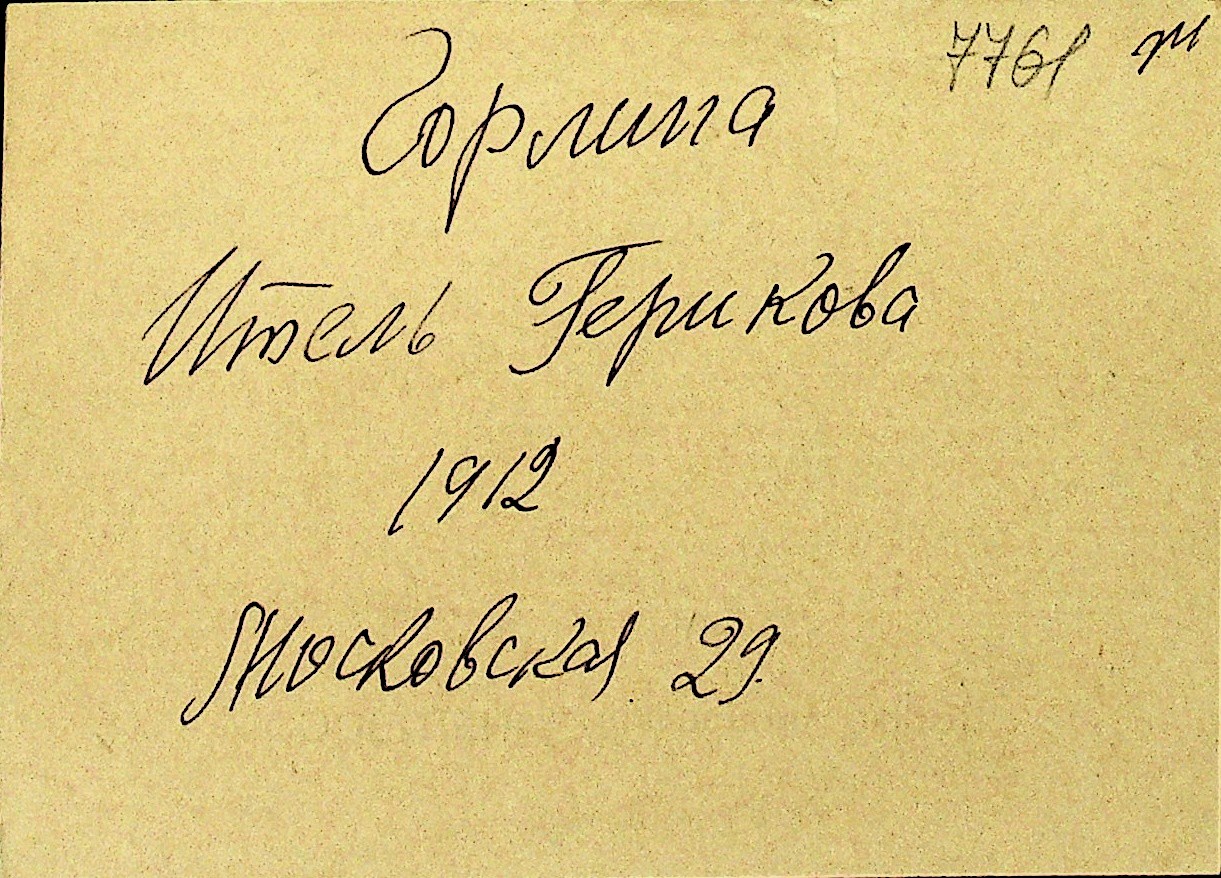 7761
Горлина
Итель Герикова
1912
Московская 29.